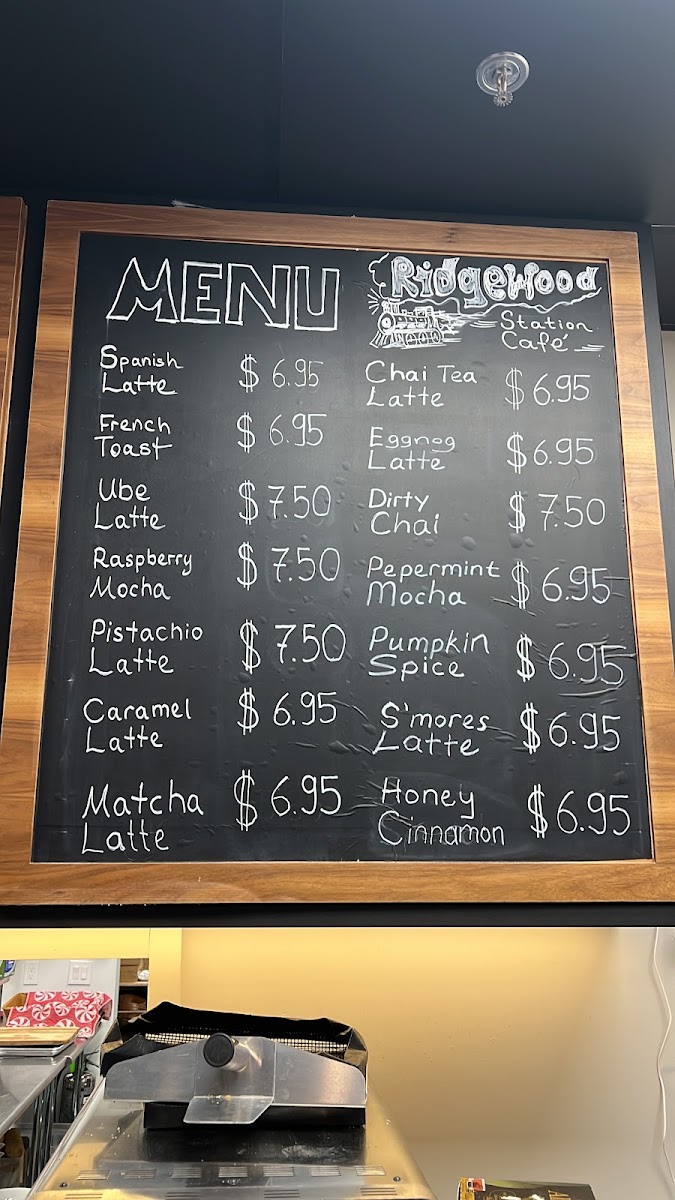 MENU
Spanish
Latte
$ 6.95
French
Toast
$ 6.95
Ube
Latte
$ 7.50
Raspberry
Mocha
$ 7.50
Pistachio
Latte
$ 7.50
Caramel
Latte
$ 6.95
Matcha
Latte
$ 6.95
RidgeWood
Station
Café
Chai Tea
Latte
$ 6.95
Eggnog
Latte
$ 6.95
Dirty
Chai
$ 7.50
Pepermint
Mocha
$ 6.95
Pumpkin
Spice
$ 6.95
S'mores
Latte
$ 6.95
Honey
Cinnamon
$ 6.95